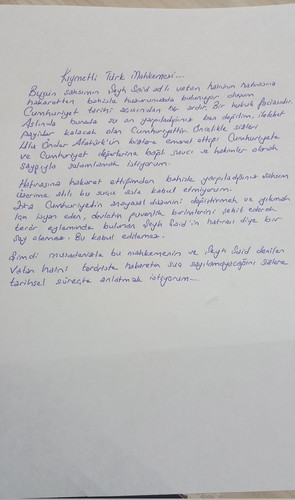 Kıymetli Türk Mahkemesi...
Bugün şahsımın Şeyh Said adlı vatan haininin hatırasına
hakaretten bahisle huzurunuzda bulunuyor oluşum
Cumhuriyet tarihi açısından bir ardır. Bir hukuk faciasıdır.
Aslında burada şu an yargıladığınız ben değilim, ilelebet
payidar kalacak olan Cumhuriyettir. Öncelikle sizleri
Ulu Önder Atatürk'ün bizlere emanet ettiği Cumhuriyete
ve Cumhuriyet değerlerine bağlı savcı ve hakimler olarak
saygıyla selamlamak istiyorum.
Hatırasına hakaret ettiğimden bahisle yargıladığınız şahsım
üzerime atılı bu suçu asla kabul etmiyorum.
Zira Cumhuriyetin anayasal düzenini değiştirmek ve yıkmak
için isyan eden, devletin güvenlik birimlerini şehit ederek
terör eyleminde bulunan Şeyh Said'in hatırası diye bir
şey olamaz. Bu kabul edilemez.
Şimdi müsadenizle bu mahkemenin ve Şeyh Said denilen
vatan haini teröriste hakaretin suç sayılamayacağını sizlere
tarihsel süreçte anlatmak istiyorum...